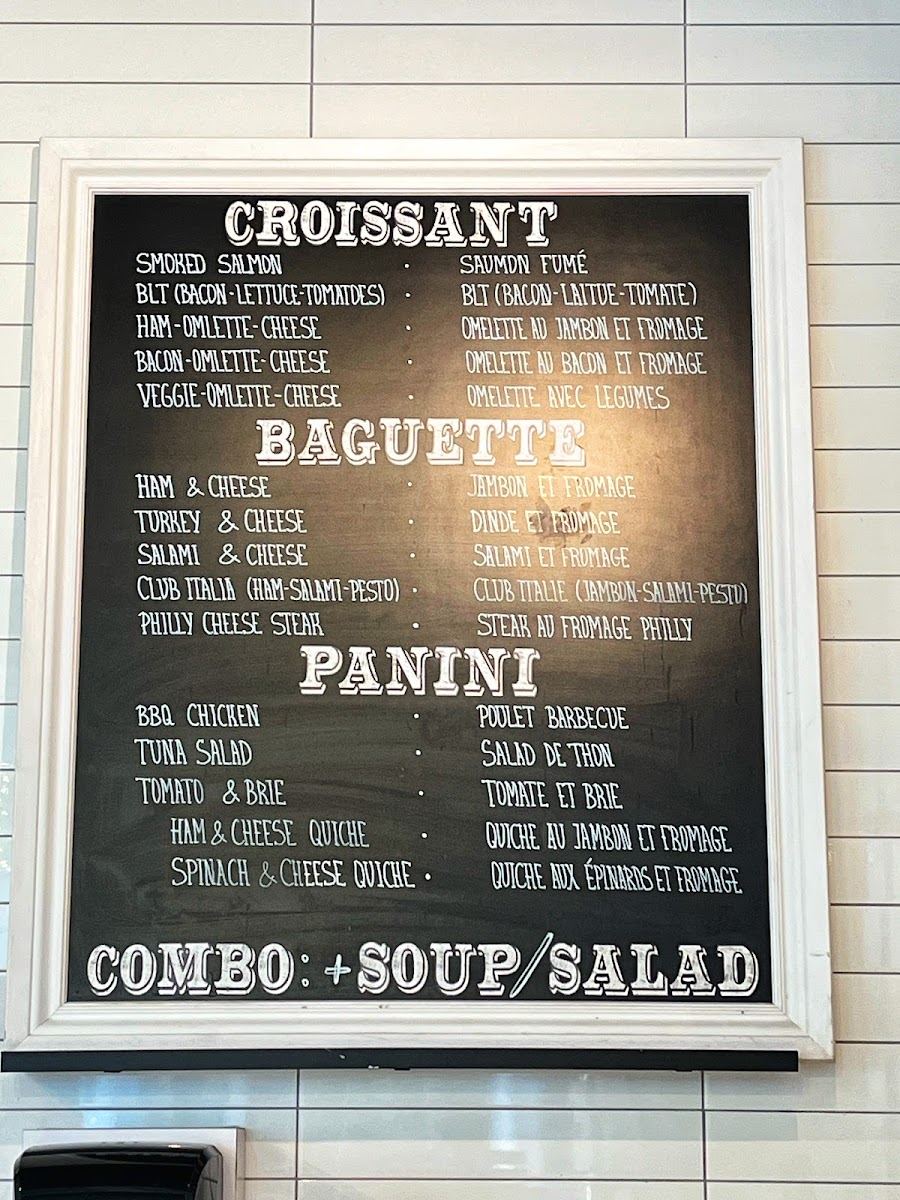 CROISSANT
SMOKED SALMON · SAUMON FUMÉ
BLT (BACON-LETTUCE-TOMATOES) · BLT (BACON-LAITUE-TOMATE)
HAM-OMLETTE-CHEESE · OMELETTE AU JAMBON ET FROMAGE
BACON-OMLETTE-CHEESE · OMELETTE AU BACON ET FROMAGE
VEGGIE-OMLETTE-CHEESE · OMELETTE AVEC LEGUMES
BAGUETTE
HAM & CHEESE · JAMBON ET FROMAGE
TURKEY & CHEESE · DINDE ET FROMAGE
SALAMI & CHEESE · SALAMI ET FROMAGE
CLUB ITALIA (HAM-SALAMI-PESTO) · CLUB ITALIE (JAMBON-SALAMI-PESTO)
PHILLY CHEESE STEAK · STEAK AU FROMAGE PHILLY
PANINI
BBQ CHICKEN · POULET BARBECUE
TUNA SALAD · SALAD DE THON
TOMATO & BRIE · TOMATE ET BRIE
HAM & CHEESE QUICHE · QUICHE AU JAMBON ET FROMAGE
SPINACH & CHEESE QUICHE · QUICHE AUX ÉPINARDS ET FROMAGE
COMBO: + SOUP/SALAD